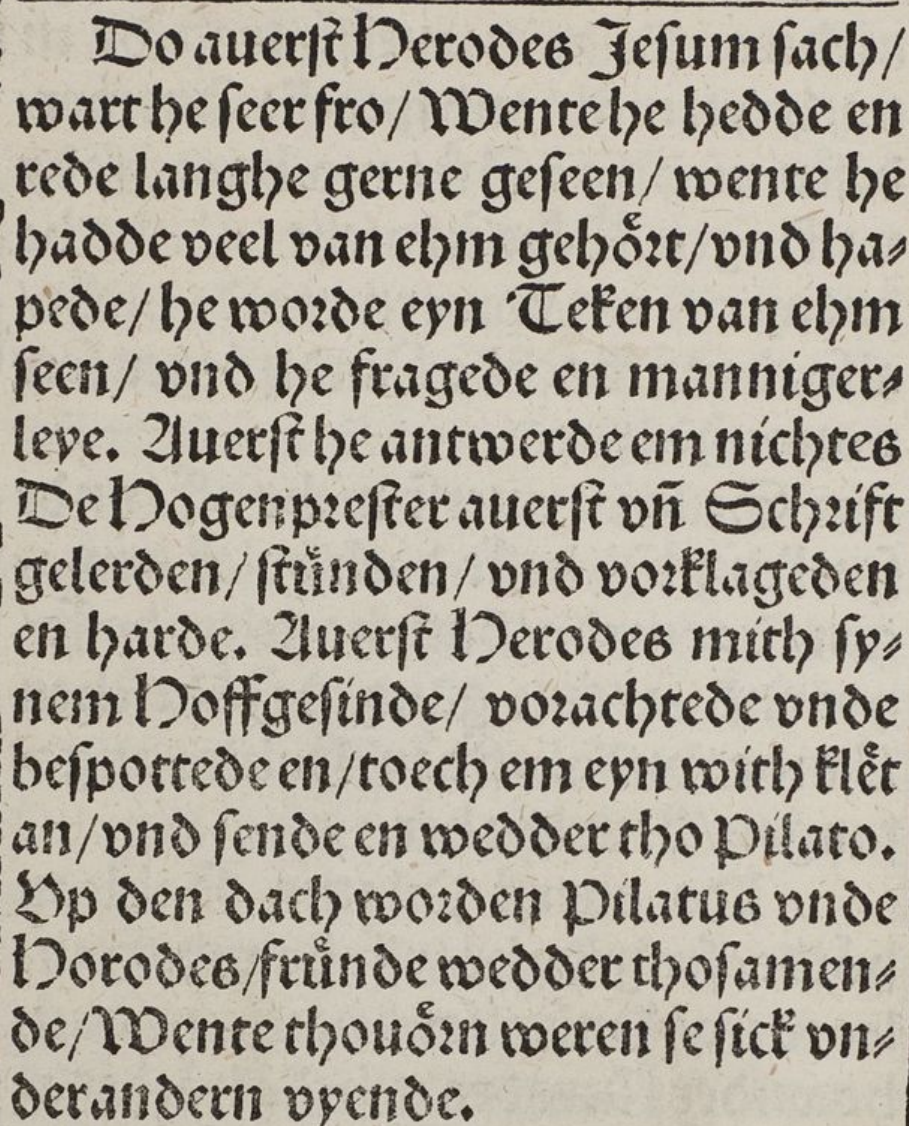 Do auerſt Herodes Jeſum ſach/
wart he ſeer fro/ Wente he hedde en
rede langhe gerne geſeen/ wente he
hadde veel van ehm gehoͤrt/ vnd ha⸗
pede/ he worde eyn Teken van ehm
ſeen/ vnd he fragede en manniger⸗
leye. Auerſt he antwerde em nichtes
De Hogenpreſter auerſt vn̄ Schrift
gelerden/ ſtuͤnden/ vnd vorklageden
en harde. Auerſt Herodes mith ſy⸗
nem Hoffgeſinde/ vorachtede vnde
beſpottede en/ toech em eyn with kleͤt
an/ vnd ſende en wedder tho Pilato.
Vp den dach worden Pilatus vnde
Horodes/ fruͤnde wedder thoſamen⸗
de/ Wente thouoͤrn weren ſe ſick vn⸗
der andern vyende.